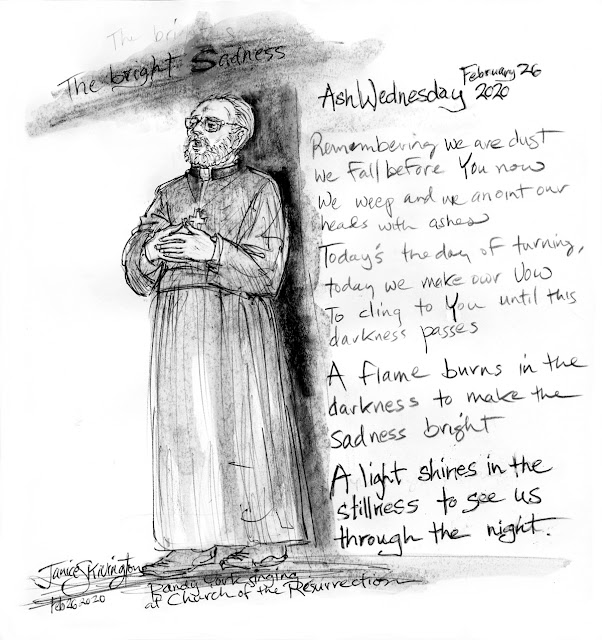 The bright S
The bright Sadness
Ash Wednesday February 26
2020
Remembering we are dust
we fall before You now
We weep and we anoint our
heads with ashes
Today's the day of turning,
today we make our Vow
To cling to You until this
darkness passes
A flame burns in the
darkness to make the
sadness bright
A light shines in the
stillness to see us
through the night.
Janice Skivington
Feb 26 2020
Randy York singing
at Church of the Resurrection